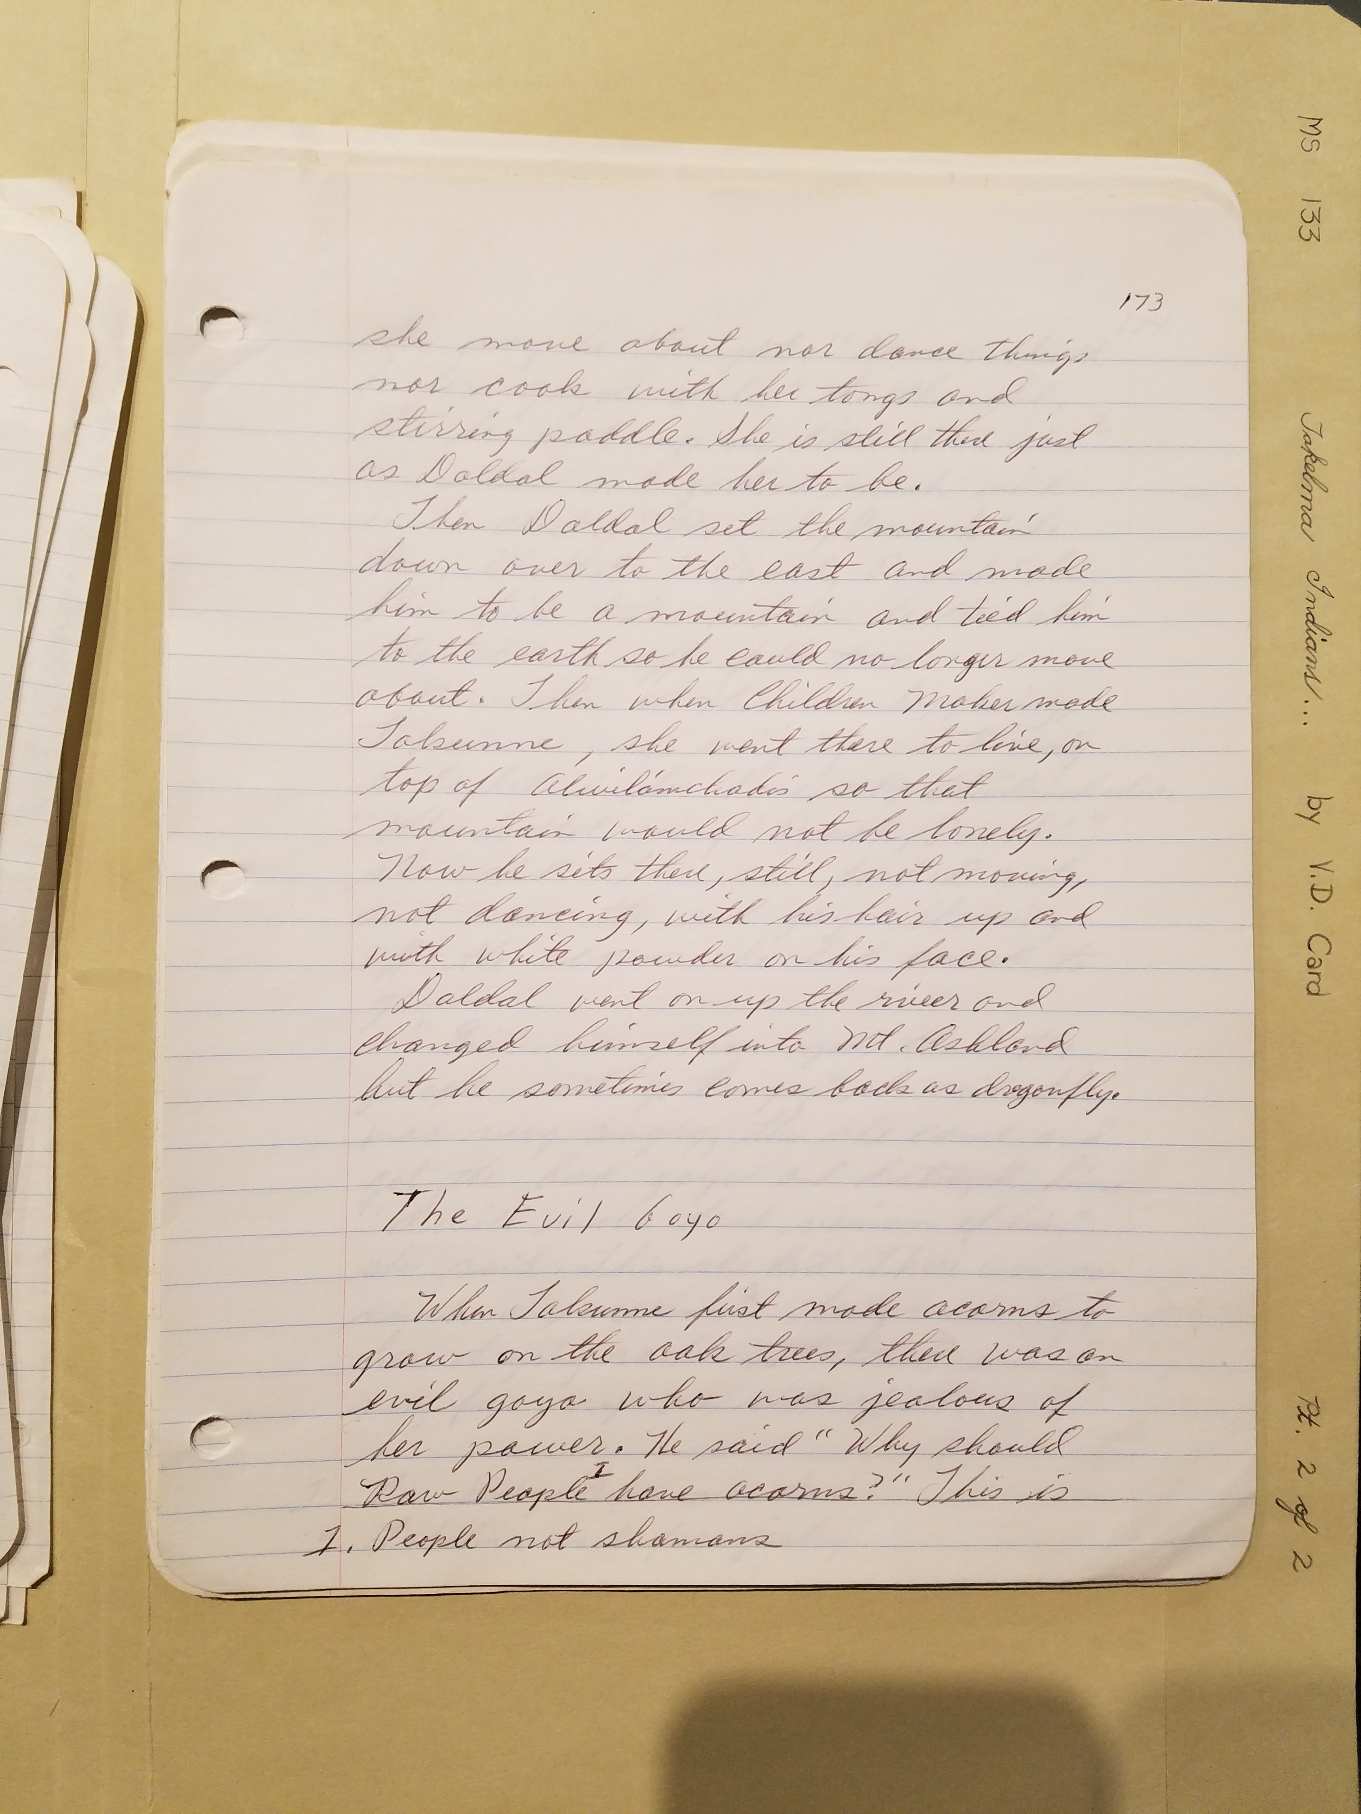 173
she move about nor dance things
nor cook with her tongs and
stirring paddle. She is still there just
as Daldal made her to be.
Then Daldal set the mountain
down over to the east and made
him to be a mountain and tied him
to the earth so he could no longer move
about. Then when Children Maker made
Talsunne, she went there to live, on
top of Alwilámchadis so that
mountain would not be lonely.
Now he sits there, still, not moving,
not dancing, with his hair up and
with white powder on his face.
Daldal went on up the river and
changed himself into Mt. Ashland
but he sometimes comes back as dragonfly.
The Evil Goyo
When Talsunne first made acorns to
grow on the oak trees, there was an
evil goyo who was jealous of
her power. He said "Why should
Raw People¹ have acorns?" This is
1. People not shamans
MS 133 Takelma Indians... by V.D. Card Pt. 2 of 2